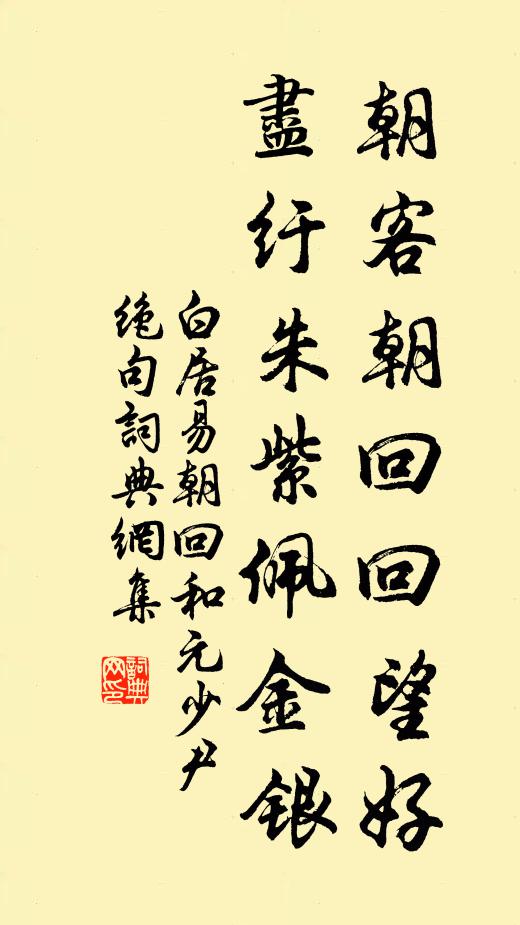 朝客朝回回望好
盡紆朱紫佩金銀
白居易朝回和元少尹
絶句詞典網集
詞典網印